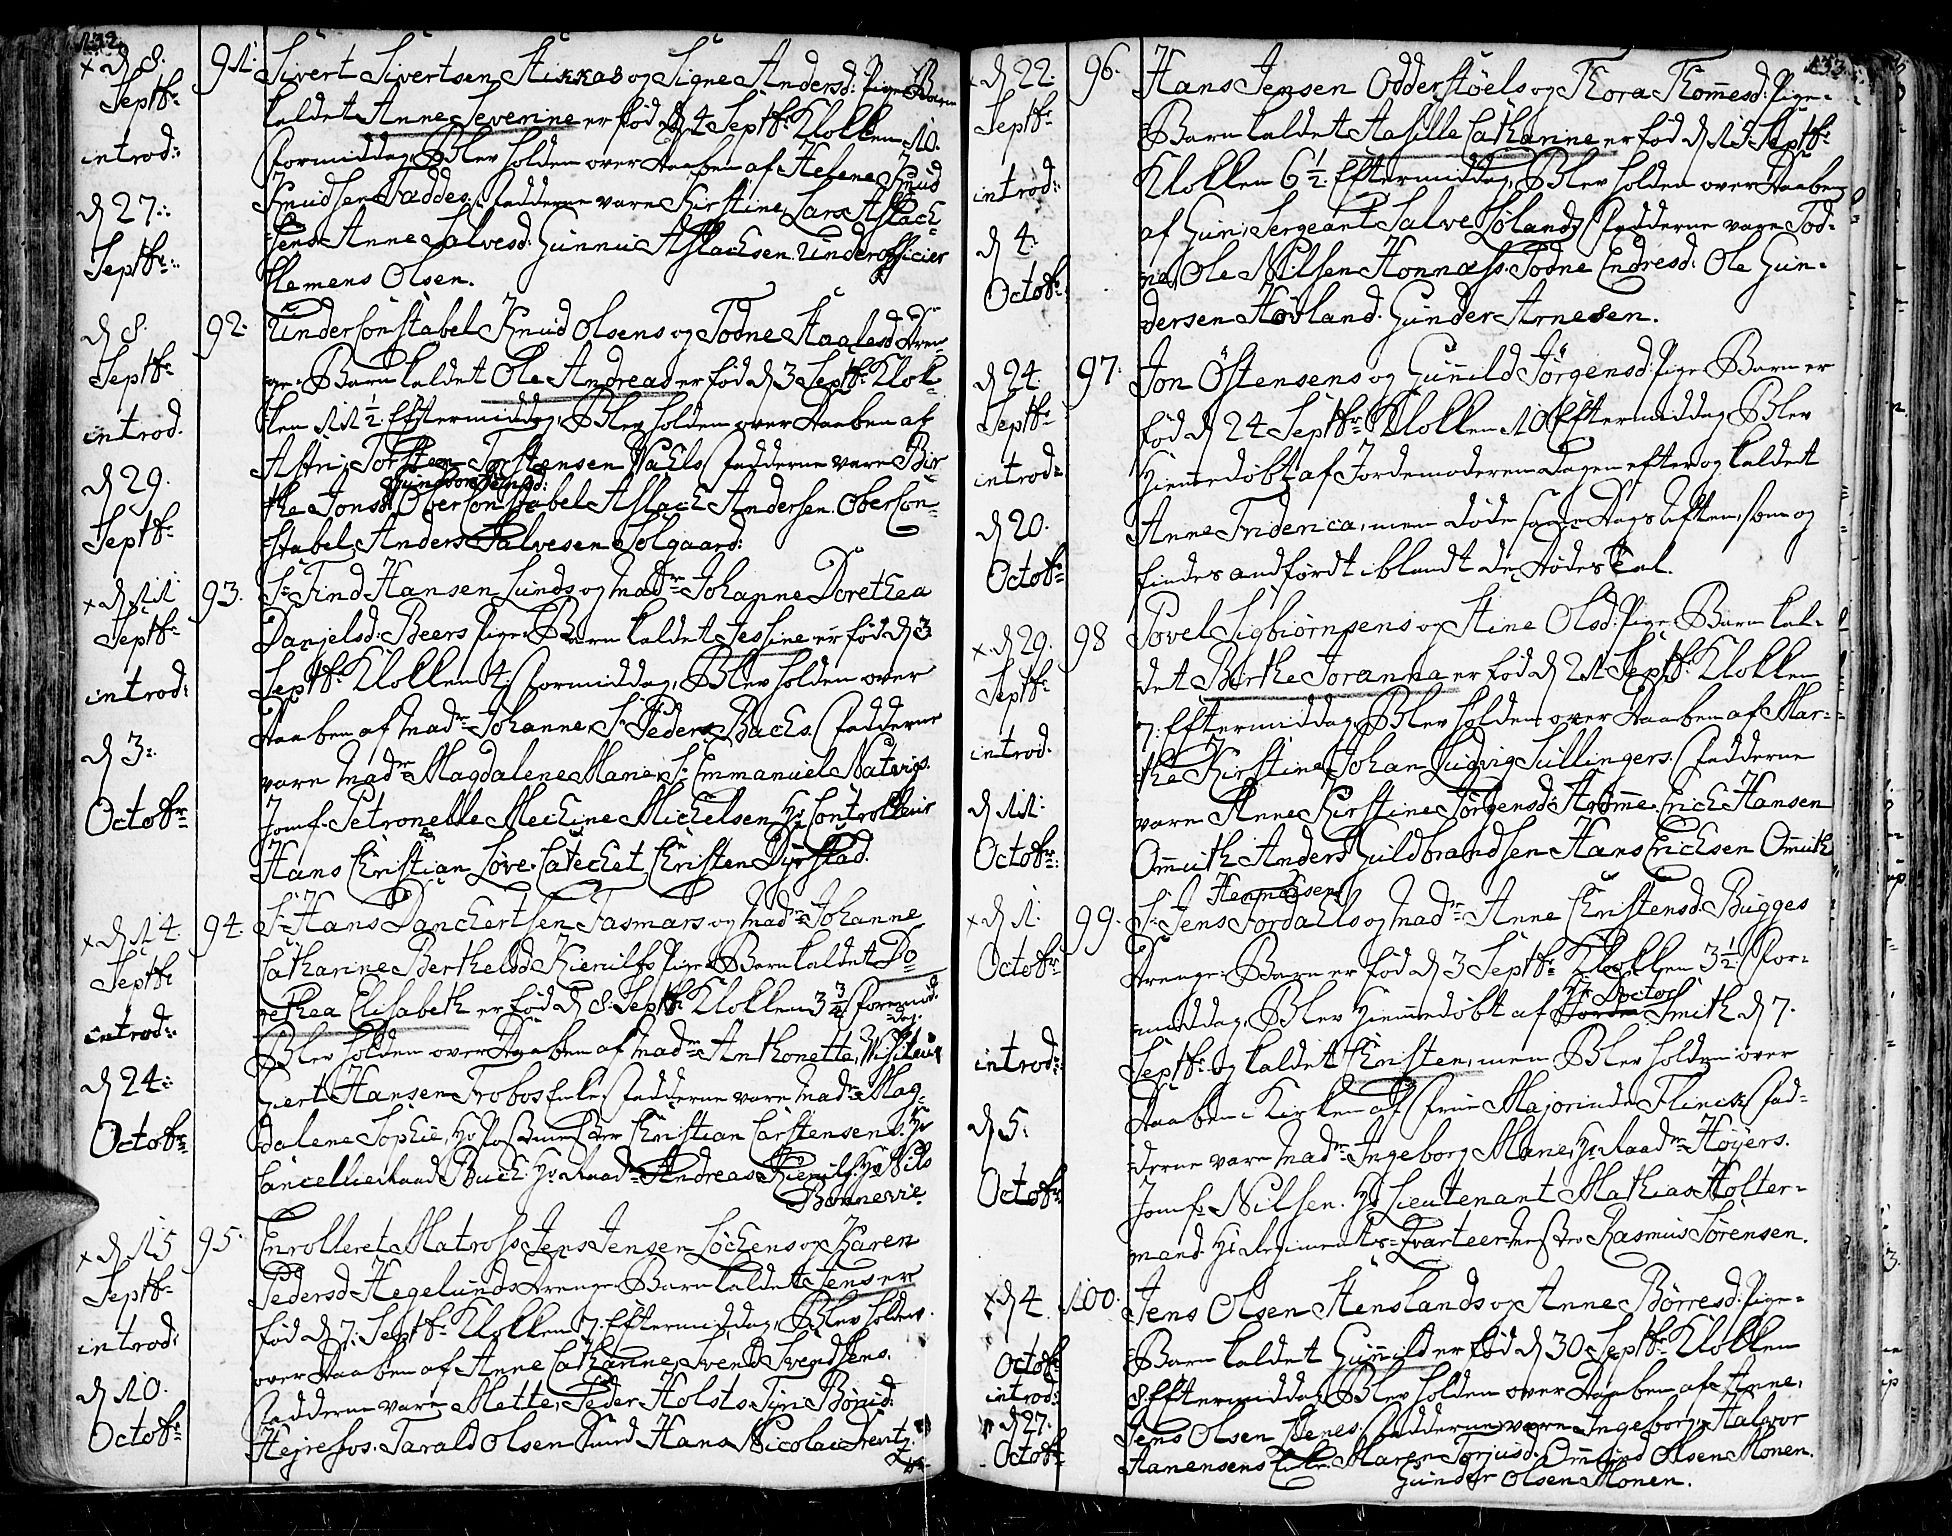 132.
× d 8. Septbr. introd: d 27. Septbr.
91. Sivert Sivertsen Stikkas og Signe Andersd: Pige Barn
kaldet Anne Severine er fød d 4 Septbr: Klokken 10.
Formiddag, Blev holden over Daaben af Helene Knud
Knudsen Faddes. Fadderne vare Kirstine, Lars Aslach-
sens. Anne Salvesd: Gunnui Aslachsen. Underofficier
Clemens Olsen.
d 8. Septbr. introd. d 29. Septbr.
92. Underconstabel Knud Olsens og Todne Haalesd Dren-
ge Barn kaldet Ole Andreas er fød d 3 Septbr: Klok-
ken 11 1/2. Eftermiddag, Blev holden over Daaben af
Astri, Torsten Torstensen Vaels. Fadderne vare Bir-
the Jonsd. Oberconstabel Aslach Andersen. Obercon-
stabel, Anders Salvesen Solgaard:
× d 11 Septbr. introd: d 3. Octobr.
93. Sr. Find Hansen Lunds og Madme Johanne Dorethea
Danjelsd: Beers Pige Barn kaldet Jessine er fød d 3
Septbr. Klokken 4. Formiddag, Blev holden over
Daaben af Madme Johanne, Sr. Peder Bachs. Fadderne
vare Madme Magdalene Marie, Sr. Emmanuel Natvigs.
Jomf. Petronelle Mechine Michelsen, Hr. Controlleur
Hans Christian Love. Catechet Christen Dyrstad.
× d 14. Septbr introd: d 24. Octobr.
94. Sr. Hans Danchertsen Fasmars og Madme Johanne
Catharine Berthelsd Kierulfs Pige Barn kaldet Do-
rethea Elisabeth er fød d 8. Septbr. Klokken 3 3/4 Formid-
dag.
Blev holden over Daaben af Madme Anthonette, Visiteur
Giert Hansen Frobos Enke. Fadderne vare Madme Mag-
dalene Sophie, Hr. Postmester Christian Carstensens. Hr.
Cancellieraad Buch. Hr. Raadm. Andreas Kierulf. Hr. Nils
Bonnevie.
× d 15 Septbr. introd: d 10. Octobr.
95. Enrolleret Matrosse Jens Jensen Lochens og Karen
Pedersd Hegelunds Drenge Barn kaldet Jens er
fød d 7. Septbr. Klokken 7. Eftermiddag, Blev holden
over Daaben af Anne Catharine, Svend Svendsens.
Fadderne vare Mette, Peder Holsts. Siri Børud:
Hejrefos. Tarald Olsen Sund Hans Nicolai
133.
× d 22. Septbr. introd: d 4. Octobr.
96. Hans Jensen Odderstøels og Thora Thomesd: Pige-
Barn kaldet Aasille Catharine er fød d 15 Septbr.
Klokken 6 1/2. Eftermiddag, Blev holden over Daaben
af Guri, Sergeant Salve Sølands. Fadderne vare Tod-
ne, Ole Nilsen Honnæss. Todne Endresd: Ole Gun-
dersen Høvland. Gunder Arnesen.
d 24. Septbr. introd: d 20. Octobr.
97. Jon Østensens og Gunild Jørgensd: Pige Barn er
fød d 24 Septbr. Klokken 10 Eftermiddag, Blev
Hiemedøbt af Jordemoderen Dagen efter og kaldet
Anne Friderica, men døde samme Dags Aften, som og
findes andført iblandt de Dødes Tal.
× d 29. Septbr. introd. d 11. Octobr.
98 Povel Sigbiørnsens og Stine Olsd: Pige Barn kal-
det Birthe Joranna er fød d 21 Septbr: Klokken
7. Eftermiddag, Blev holden over Daaben af Mar-
the Kirstine, Johan Ludvig Sullingers. Fadderne
vare Anne Kirstine Jørgensd: Strømme. Erich Hansen
Omuth. Anders Guldbrandsen. Hans Erichsen Omuth
× d 1. Octobr. introd: d 5. Octobr
99. Sr. Jens Fordahls og Madme Anne Christensd. Bugges
Drenge Barn er fød d 3 Septbr. Klokken 3 1/2. For-
middag, Blev Hiemmedøbt af Hr. Doctor Smith d 7.
Septbr. og kaldet Christen, men Blev holden over
Daaben i Kirken af Frue Majorinde Flinck. Fad-
derne vare Madme Ingeborg Marie, Hr. Raadm. Høyers.
Jomf. Nilsen. Hr. Lieutenant Mathias Holter-
mand. Hr. Regiments-Qvarteermester Rasmus Sørensen.
× d 4 Octobr introd: d 27. Octobr
100. Jens Olsen Stenslands og Anne Børresd: Pige-
Barn kaldet Gunnild er fød d 30 Septbr. Klokken
8. Eftermiddag, Blev holden over Daaben af Anne,
Jens Olsen Stenes. Fadderne vare Ingeborg, Halvor
Hanensens Enke. Maren Torjusd. Omund Olsen Monen.
Gunder Olsen Monen.